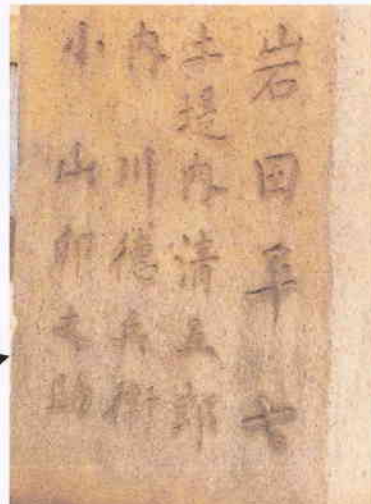 岩田平七
土提内清五郎
内川徳兵衛
小山卯之助